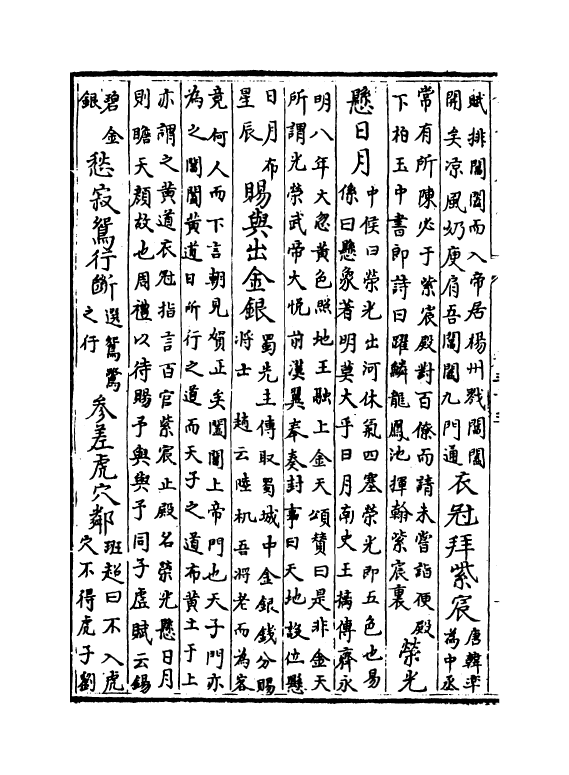 賦排閶闔而入帝居楊州戮閶闔
開矣涼風奶庾肩吾閶闔九門通
衣冠拜紫宸
唐韓臯
為中丞
常有所陳必于紫宸殿對百僚而請未嘗詣便殿
下柏玉中書即詩曰躍麟龍鳳池揮翰紫宸裏
榮光
懸日月
中侯曰榮光出河休氣四塞榮光即五色也易
係曰懸象著明莫大乎日月南史王摛傳齊永
明八年大忽黃色照地王融上金天頌贊曰是非金天
所謂光榮武帝大悅前漢翼奉奏封事曰天地設位懸
日月布
星辰
賜與出金銀
蜀先主傳取蜀城中金銀錢分賜
將士 趙云陸机吾將老而為客
竟何人而下言朝見賀正矣閶闔上帝門也天子門亦
為之閶闔黃道日所行之道而天子之道布黃土于上
亦謂之黃道衣冠指言百官紫宸正殿名榮光懸日月
則瞻天顏故也周禮以待賜予與與予同子虛賦云錫
碧金
銀
愁寂鴛行斷
選鴛鷺
之行
參差虎穴鄰
班超曰不入虎
穴不得虎子劉